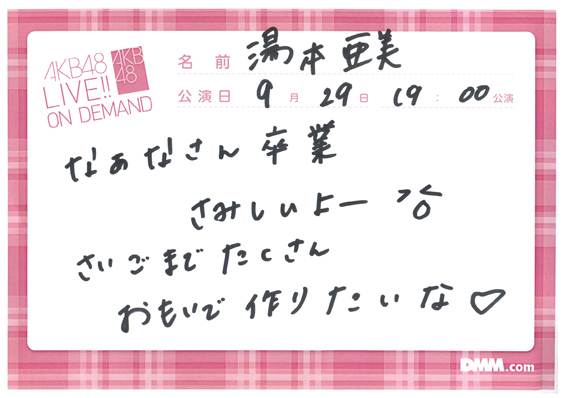 AKB48
LIVE!!
ON DEMAND
AKB
48
名前 湯本亜美
公演日 9月29日 19:00公演
なぁなさん卒業
さみしいよー
さいごまでたくさん
おもいで作りたいな♡
DMM.com